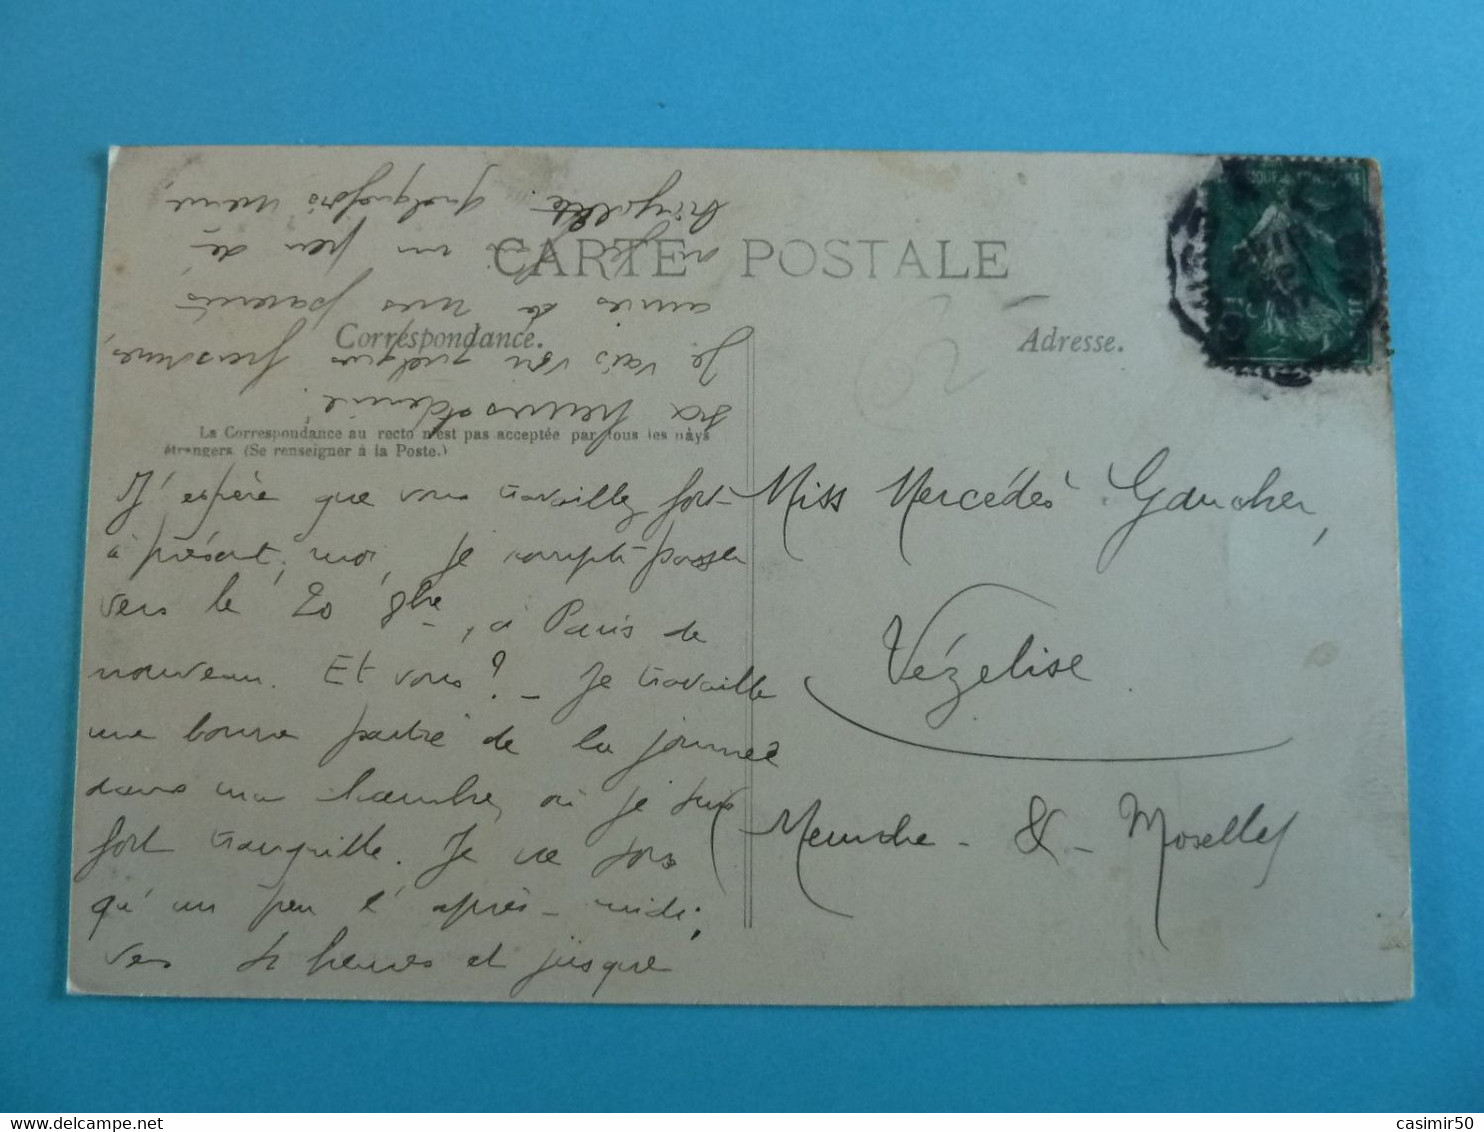 CARTE POSTALE
Correspondance.
Adresse.
La Correspondance au recto n'est pas acceptée par tous les pays
étrangers (Se renseigner à la Poste.)
J'espère que vous travaillez fort
à présent; moi, je compte passer
vers le 20 8bre, à Paris de
nouveau. Et vous? - Je travaille
une bonne partie de la journée
dans ma chambre, où je suis
fort tranquille. Je ne sors
qu'un peu l'après-midi,
vers 4 heures et jusque
six heures et demie.
Je vais voir quelques personnes,
amies de mes parents
où je fais un peu de
quelquefois même
Miss Mercédès Gaucher,
Vézelise
(Meurthe - & - Moselle)
casimir50